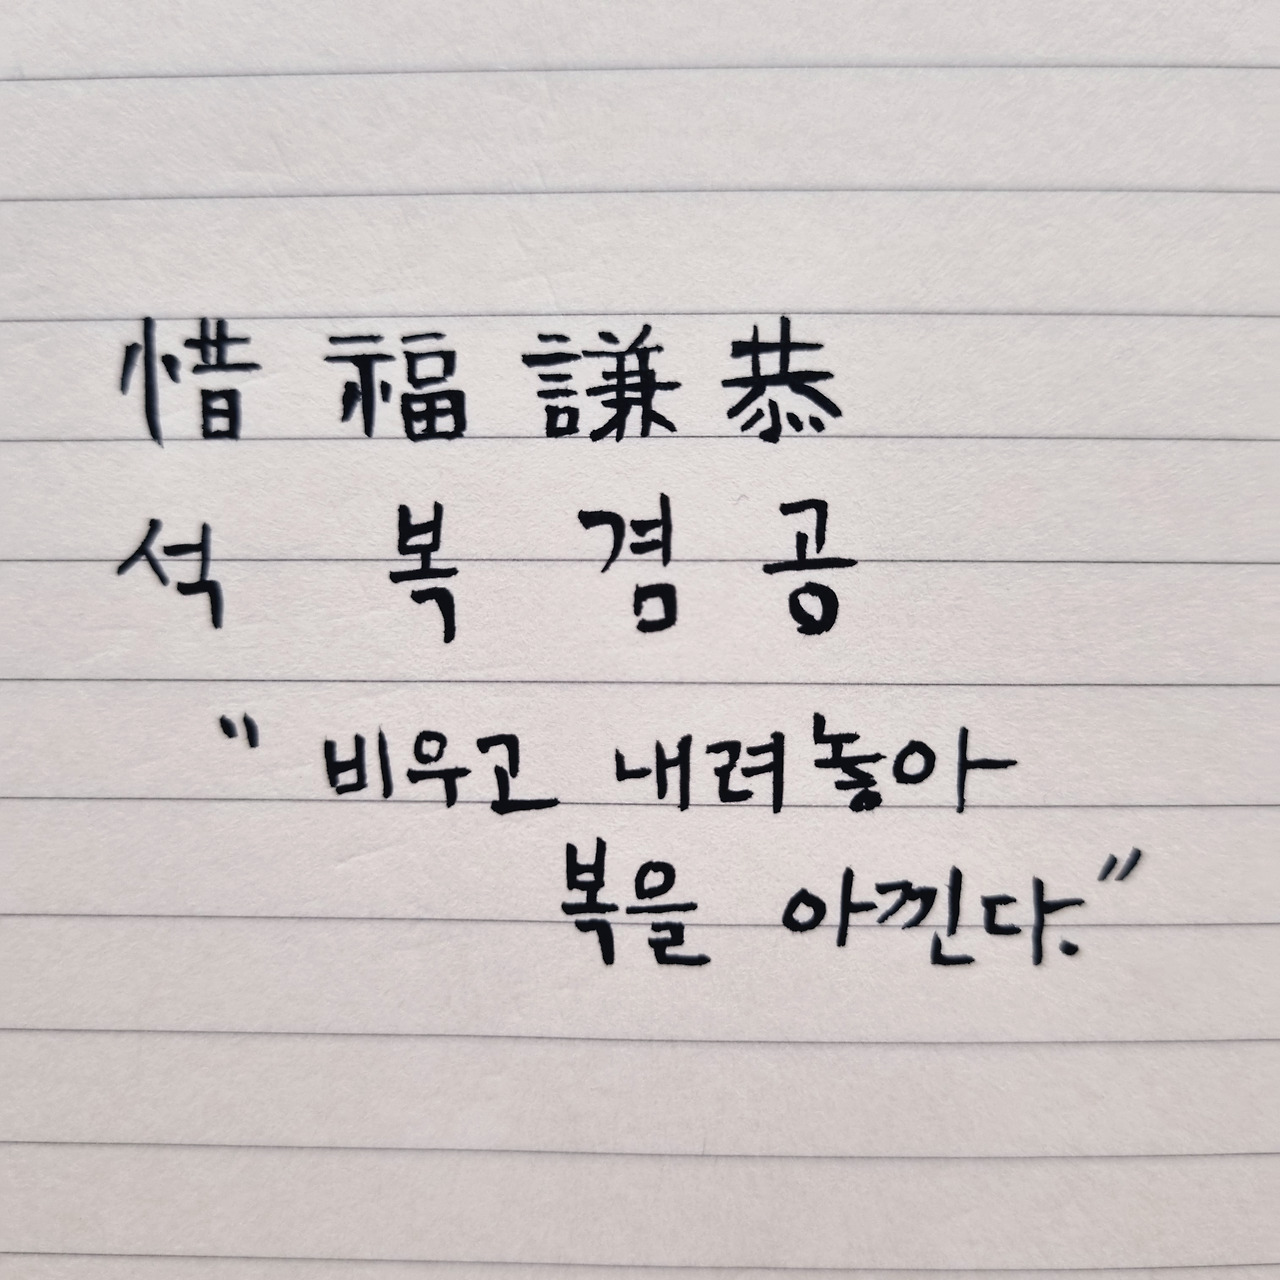 惜 福 謙 恭
석 복 겸 공
" 비우고 내려놓아
복을 아낀다."